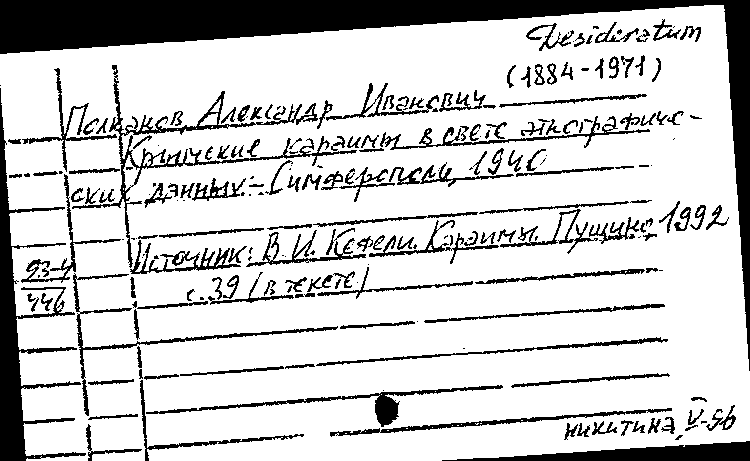 Desideratum
(1884-1971)
Полканов, Александр Иванович
Крымские караимы в свете этнографиче-
ских данных.- Симферополь, 1940
Источник: В. И. Кефели. Караимы. Пущино, 1992
с. 39 (в тексте)
93-4
446
никитина, V-96